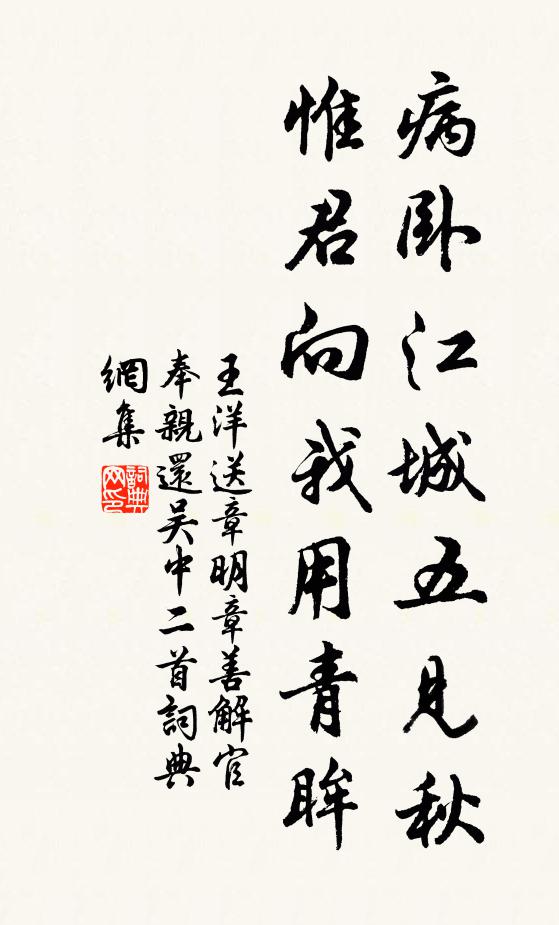 病卧江城五見秋
惟君向我用青眸
王洋送章明章善解官
奉親還吴中二首詞典
網集
詞典網印